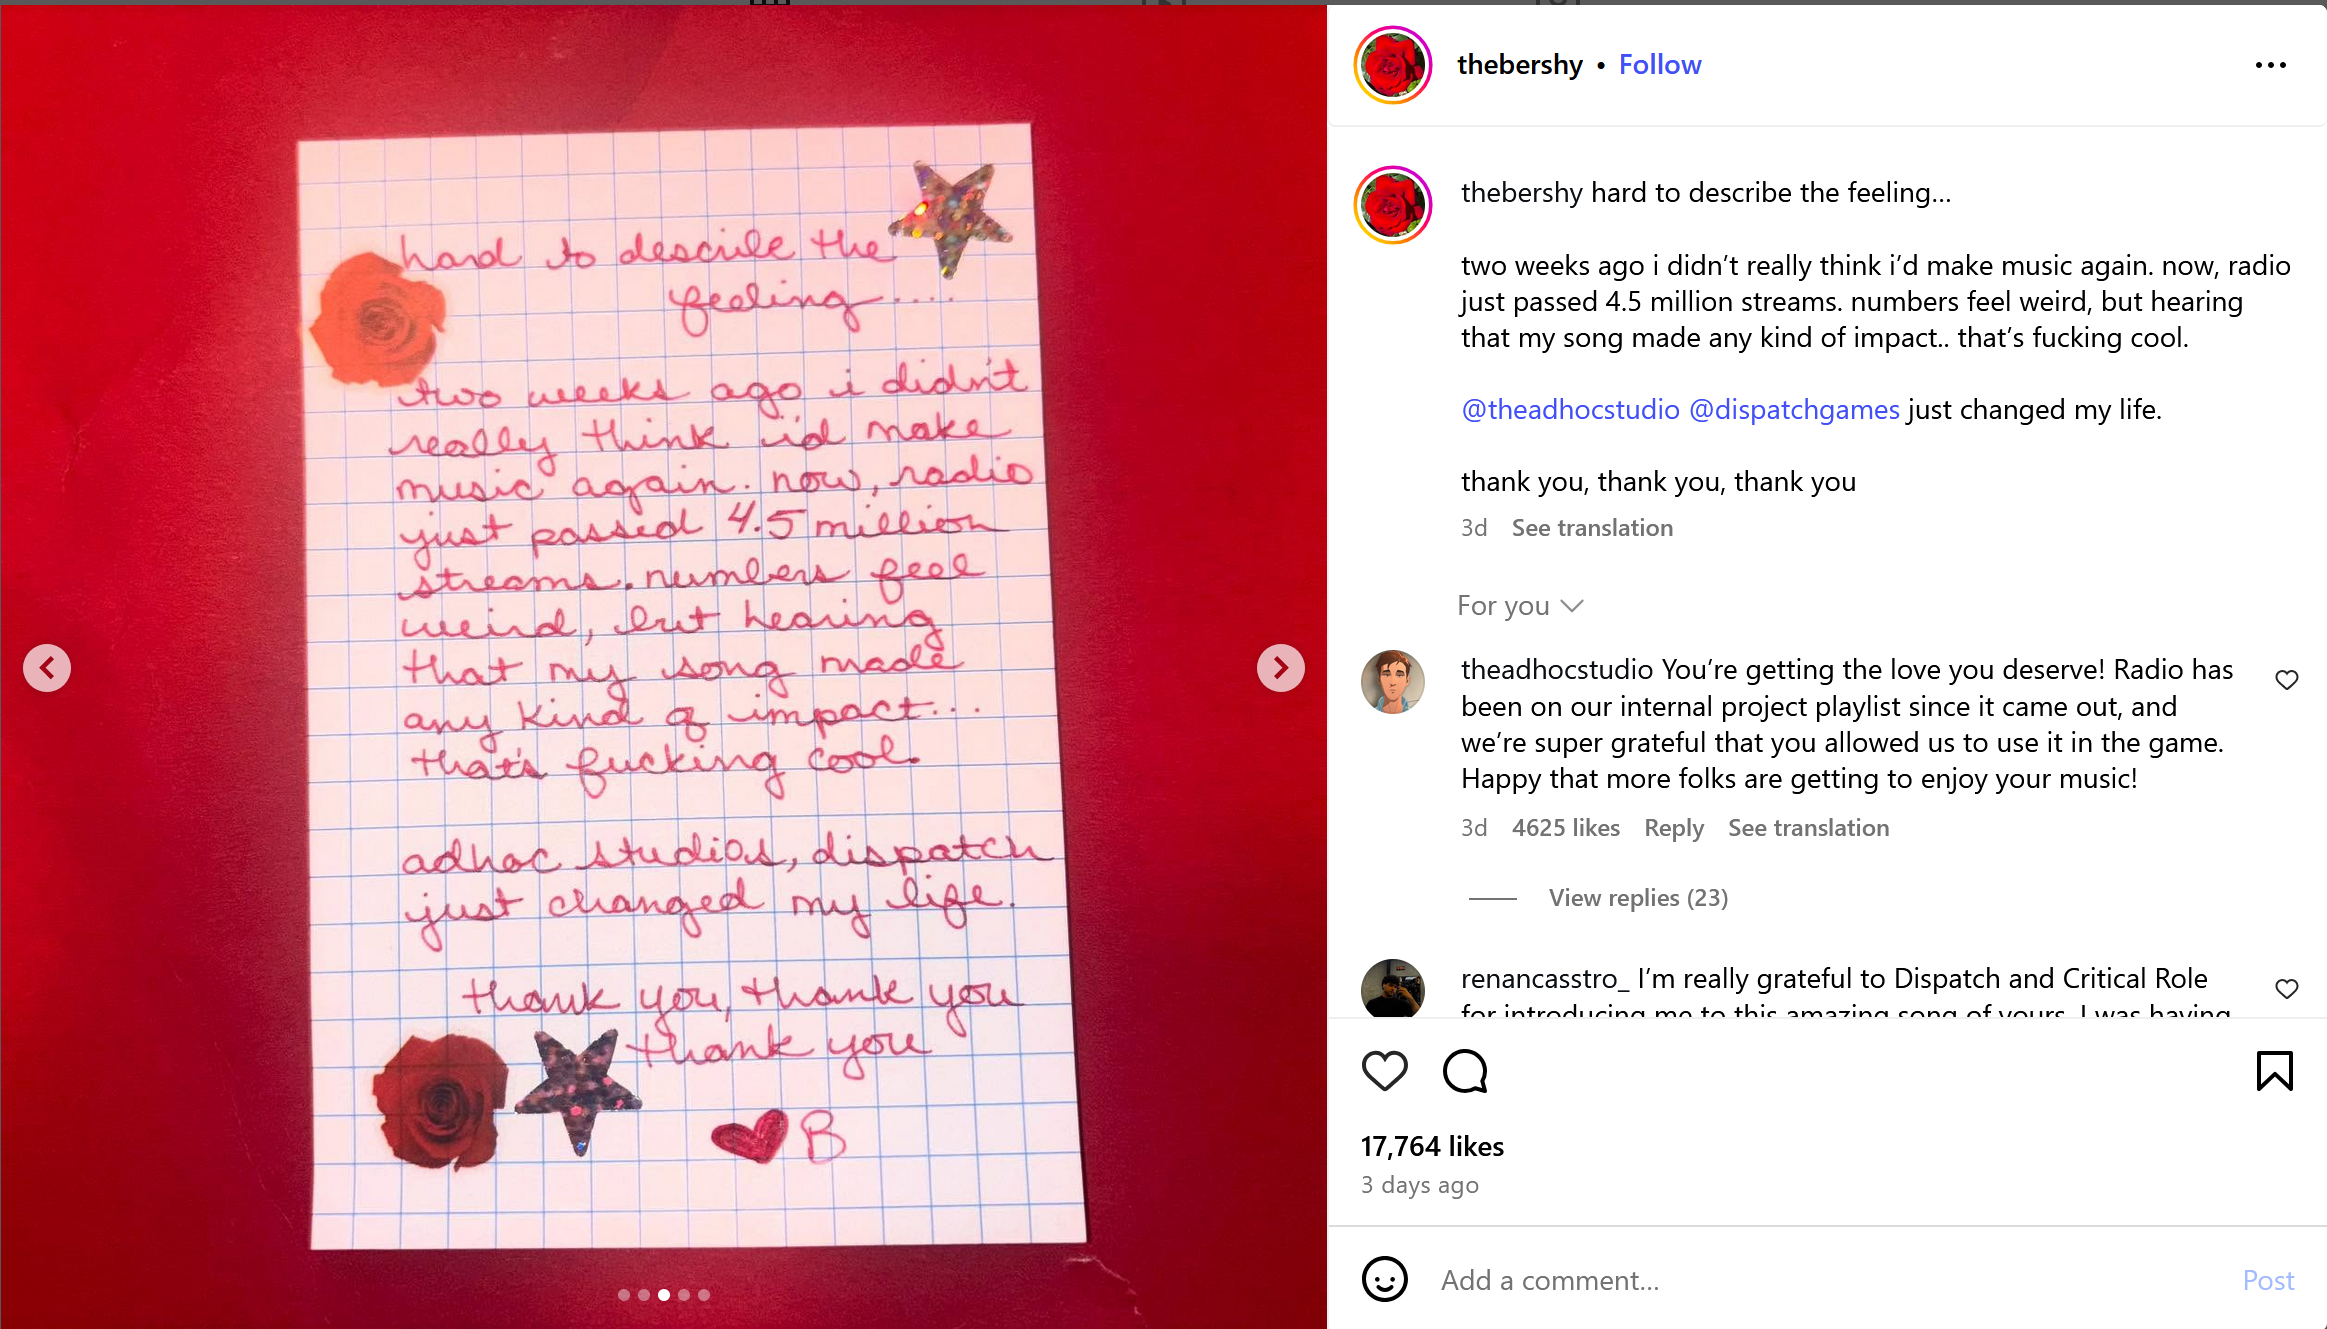 hard to describe the
feeling....
two weeks ago i didn't
really think i'd make
music again. now, radio
just passed 4.5 million
streams. numbers feel
weird, but hearing
that my song made
any kind of impact...
that's fucking cool.
adhoc studios, dispatch
just changed my life.
thank you, thank you
thank you
B
thebershy • Follow
thebershy hard to describe the feeling...
two weeks ago i didn’t really think i’d make music again. now, radio
just passed 4.5 million streams. numbers feel weird, but hearing
that my song made any kind of impact.. that’s fucking cool.
@theadhocstudio @dispatchgames just changed my life.
thank you, thank you, thank you
3d See translation
For you
theadhocstudio You’re getting the love you deserve! Radio has
been on our internal project playlist since it came out, and
we’re super grateful that you allowed us to use it in the game.
Happy that more folks are getting to enjoy your music!
3d 4625 likes Reply See translation
View replies (23)
renancasstro_ I’m really grateful to Dispatch and Critical Role
for introducing me to this amazing song of yours. I was having
17,764 likes
3 days ago
Add a comment...
Post